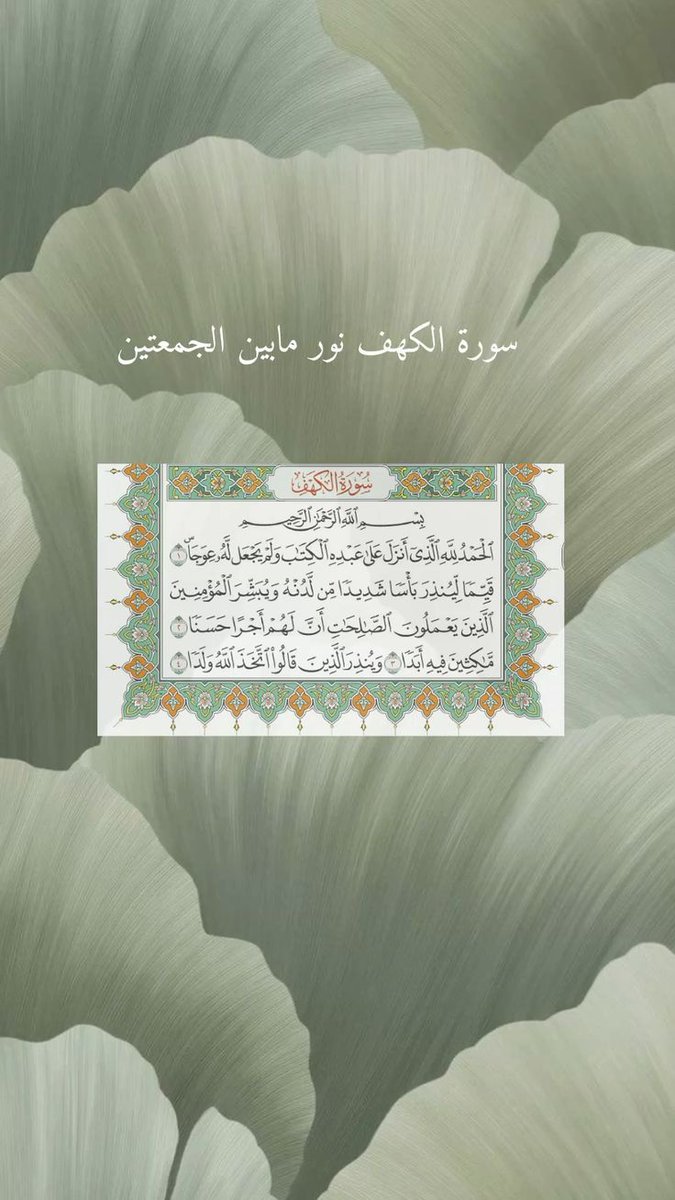 سورة الكهف نور مابين الجمعتين
سُورَةُ الكَهْفِ
بِسْمِ ٱللَّهِ ٱلرَّحْمَٰنِ ٱلرَّحِيمِ
ٱلْحَمْدُ لِلَّهِ ٱلَّذِىٓ أَنزَلَ عَلَىٰ عَبْدِهِ ٱلْكِتَٰبَ وَلَمْ يَجْعَل لَّهُۥ عِوَجَاۜ ١
قَيِّمًا لِّيُنذِرَ بَأْسًا شَدِيدًا مِّن لَّدُنْهُ وَيُبَشِّرَ ٱلْمُؤْمِنِينَ
ٱلَّذِينَ يَعْمَلُونَ ٱلصَّٰلِحَٰتِ أَنَّ لَهُمْ أَجْرًا حَسَنًا ٢
مَّٰكِثِينَ فِيهِ أَبَدًا ٣ وَيُنذِرَ ٱلَّذِينَ قَالُوا۟ ٱتَّخَذَ ٱللَّهُ وَلَدًا ٤